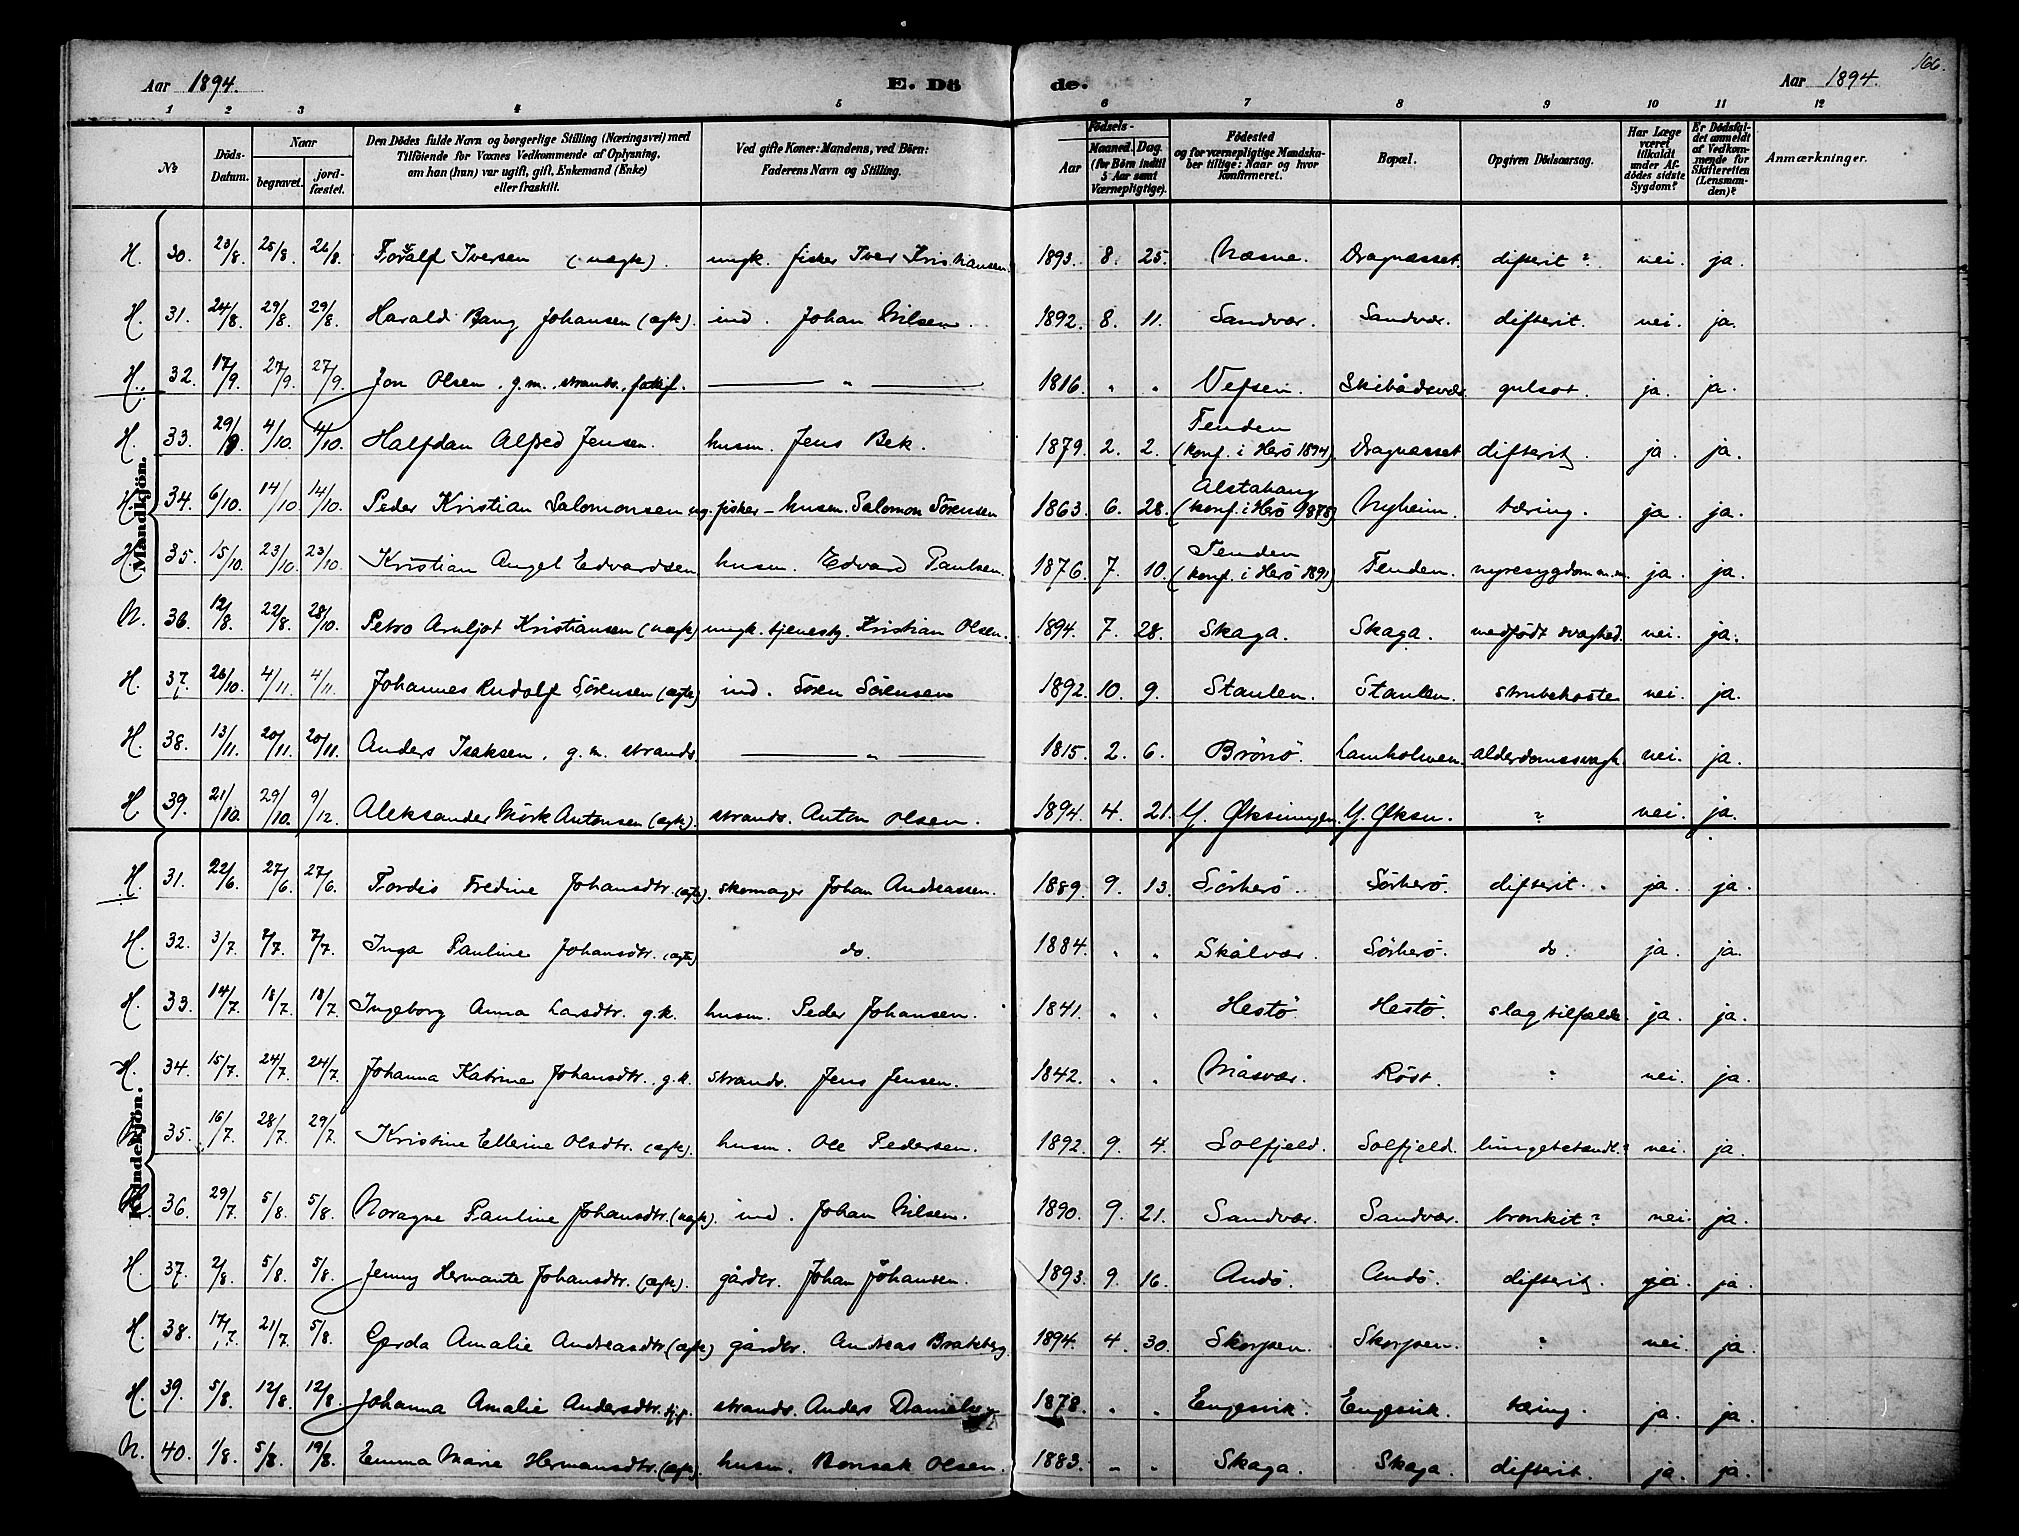 166.
Aar 1894. E. Döde. Aar 1894.
1 2 3 4 5 6 7 8 9 10 11 12
No
Döds-Datum.
Naar
begravet.
jordfæstet.
Den Dödes fulde Navn og borgerlige Stilling (Næringsvei) med
Tilföiende for Voxnes Vedkommende af Oplysning,
om han (hun) var ugift, gift, Enkemand (Enke)
eller fraskilt.
Ved gifte Koner: Mandens, ved Börn:
Faderens Navn og Stilling.
Födsels-
Aar
Maaned. Dag.
(for Börn indtil
5 Aar samt
Værnepligtige).
Födested
og for værnepligtige Mandska-
ber tillige: Naar og hvor
konfirmeret.
Bopæl.
Opgiven Dödsaarsag.
Har Læge
været
tilkaldt
under Af-
dödes sidste
Sygdom?
Er Dödsfal-
det anmeldt
af Vedkom-
mende for
Skifteretten
(Lensman-
den)?
Anmærkninger.
Mandkjön.
H. 30. 23/8. 25/8. 26/8. Toralf Iversen (uægk). ungk. fisker Iver Kristiansen. 1893. 8. 25. Næsne. Dragnæsset. difterit? nei. ja.
H. 31. 24/8. 29/8. 29/8. Harald Bang Johansen (ægk). ind. Johan Nilsen. 1892. 8. 11. Sandvær. Sandvær. difterit. nei. ja.
H. 32. 17/9. 27/9. 27/9. Jon Olsen, g.m. strands. fattigf. — " — 1816. " " Vefsen. Skibådsvær gulsot. ja. ja.
H. 33. 29/9 4/10. 4/10. Halfdan Alfred Jensen. husm. Jens Bek. 1879. 2. 2. Tenden (konf. i Herö 1894). Dragnæsset difterit. ja. ja.
H. 34. 6/10. 14/10 14/10. Peder Kristian Salomonsen ug. fisker – husm. Salomon Sörensen 1863. 6. 28. Alstahaug (konf. i Herö 1878) Nyheim. tæring. ja. ja.
H. 35. 15/10. 23/10. 23/10. Kristian Angel Edvardsen husm. Edvard Paulsen. 1876. 7. 10. Tenden (konf. i Herö 1891) Tenden. nyresygdom m.m. ja. ja.
N. 36. 12/8. 22/8. 28/10. Petro Arnljot Kristiansen (uægk) ungk. tjenestg. Kristian Olsen. 1894. 7. 28. Skaga. Skaga. medfödt svaghed. nei. ja.
H. 37. 26/10. 4/11. 4/11. Johannes Rudolf Sörensen (ægk) ind. Sören Sörensen 1892. 10. 9. Staulen. Staulen. strubehoste nei. ja.
H. 38. 13/11. 20/11. 20/11. Anders Isaksen, g.m. strands. — " — 1815. 2. 6. Brönö. Lamholmen. alderdomssvagh. nei. ja.
H. 39. 21/10. 29/10. 9/12. Aleksander Mörk Antonsen (ægk). strands. Anton Olsen. 1894. 4. 21. Y. Øksningen. Y. Øksn. ? nei. ja.
Kvindekjön.
H. 31. 22/6. 27/6. 27/6. Tordis Fredine Johansdtr. (ægk). skomager Johan Andreassen. 1889. 9. 13. Sörherö. Sörherö. difterit. ja. ja.
H. 32. 3/7. 7/7. 7/7. Inga Pauline Johansdtr. (ægk) do. 1884. " " Skålvær. Sörherö. do. ja. ja.
H. 33. 14/7. 18/7. 18/7. Ingeborg Anna Larsdtr. g.k. husm. Peder Johansen. 1841. " " Hestö. Hestö. slagtilfælde ja. ja.
H. 34. 15/7. 24/7. 24/7. Johanna Katrine Johansdtr. g.k. strands. Jens Jensen. 1842. " " Måsvær. Röst. ? nei. ja.
35. 16/7. 28/7. 29/7. Kristine Ellerine Olsdtr. (ægk). husm. Ole Pedersen. 1892. 9. 4. Solfjeld. Solfjeld. lungebetændl.? nei. ja.
H. 36. 29/7. 5/8. 5/8. Noragne Pauline Johansdtr. (uægk). ind. Johan Nilsen. 1890. 9. 21. Sandvær. Sandvær. bronkit? nei. ja.
H. 37. 2/8. 5/8. 5/8. Jenny Hermante Johansdtr. (ægk). gårdbr. Johan Johansen. 1893. 9. 16. Andö. Andö. difterit. ja. ja.
H. 38. 17/7. 21/7. 5/8. Gerda Amalie Andreasdtr. (ægk) gårdbr. Andreas Brateberg. 1894. 4. 30. Skorpen. Skorpen. ? nei. ja.
H. 39. 5/8. 12/8. 12/8. Johanna Amalie Andersdtr. strands. Anders Danielsen 1878. " " Engesvik. Engesvik. tæring. ja. ja.
N. 40. 1/8. 5/8. 19/8. Emma Marie Hermansdtr. (ægk) husm. Bonsak Olsen. 1883. " " Skaga. Skaga. difterit. ja. ja.